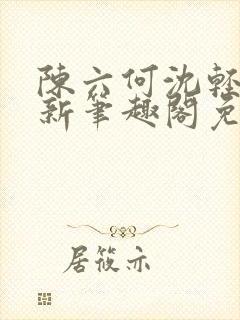 陳六何沈輕
新筆趣閣免
居筱亦